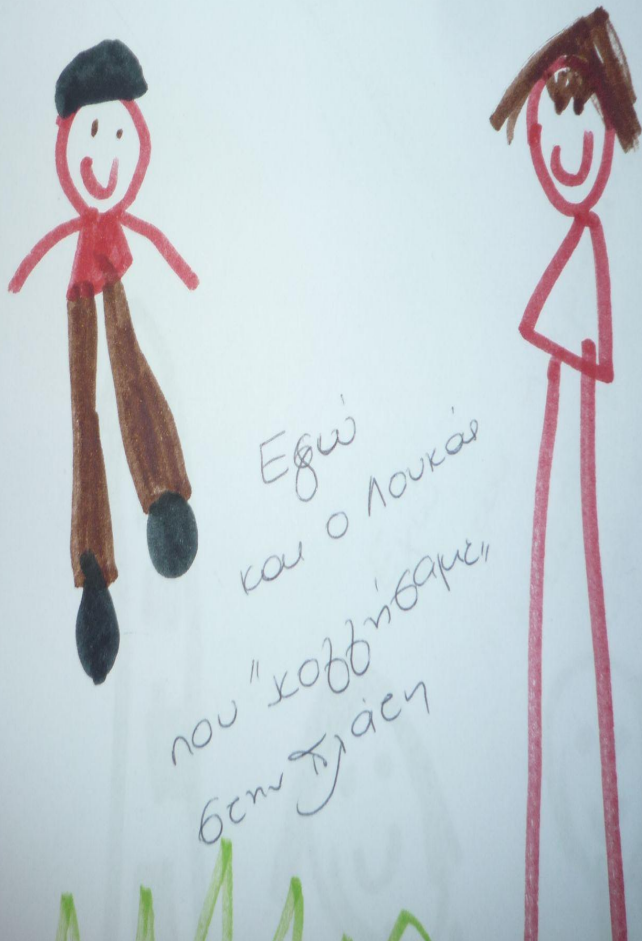 Εγώ
και ο Λουκάς
που "κολλήσαμε"
στην πλάτη